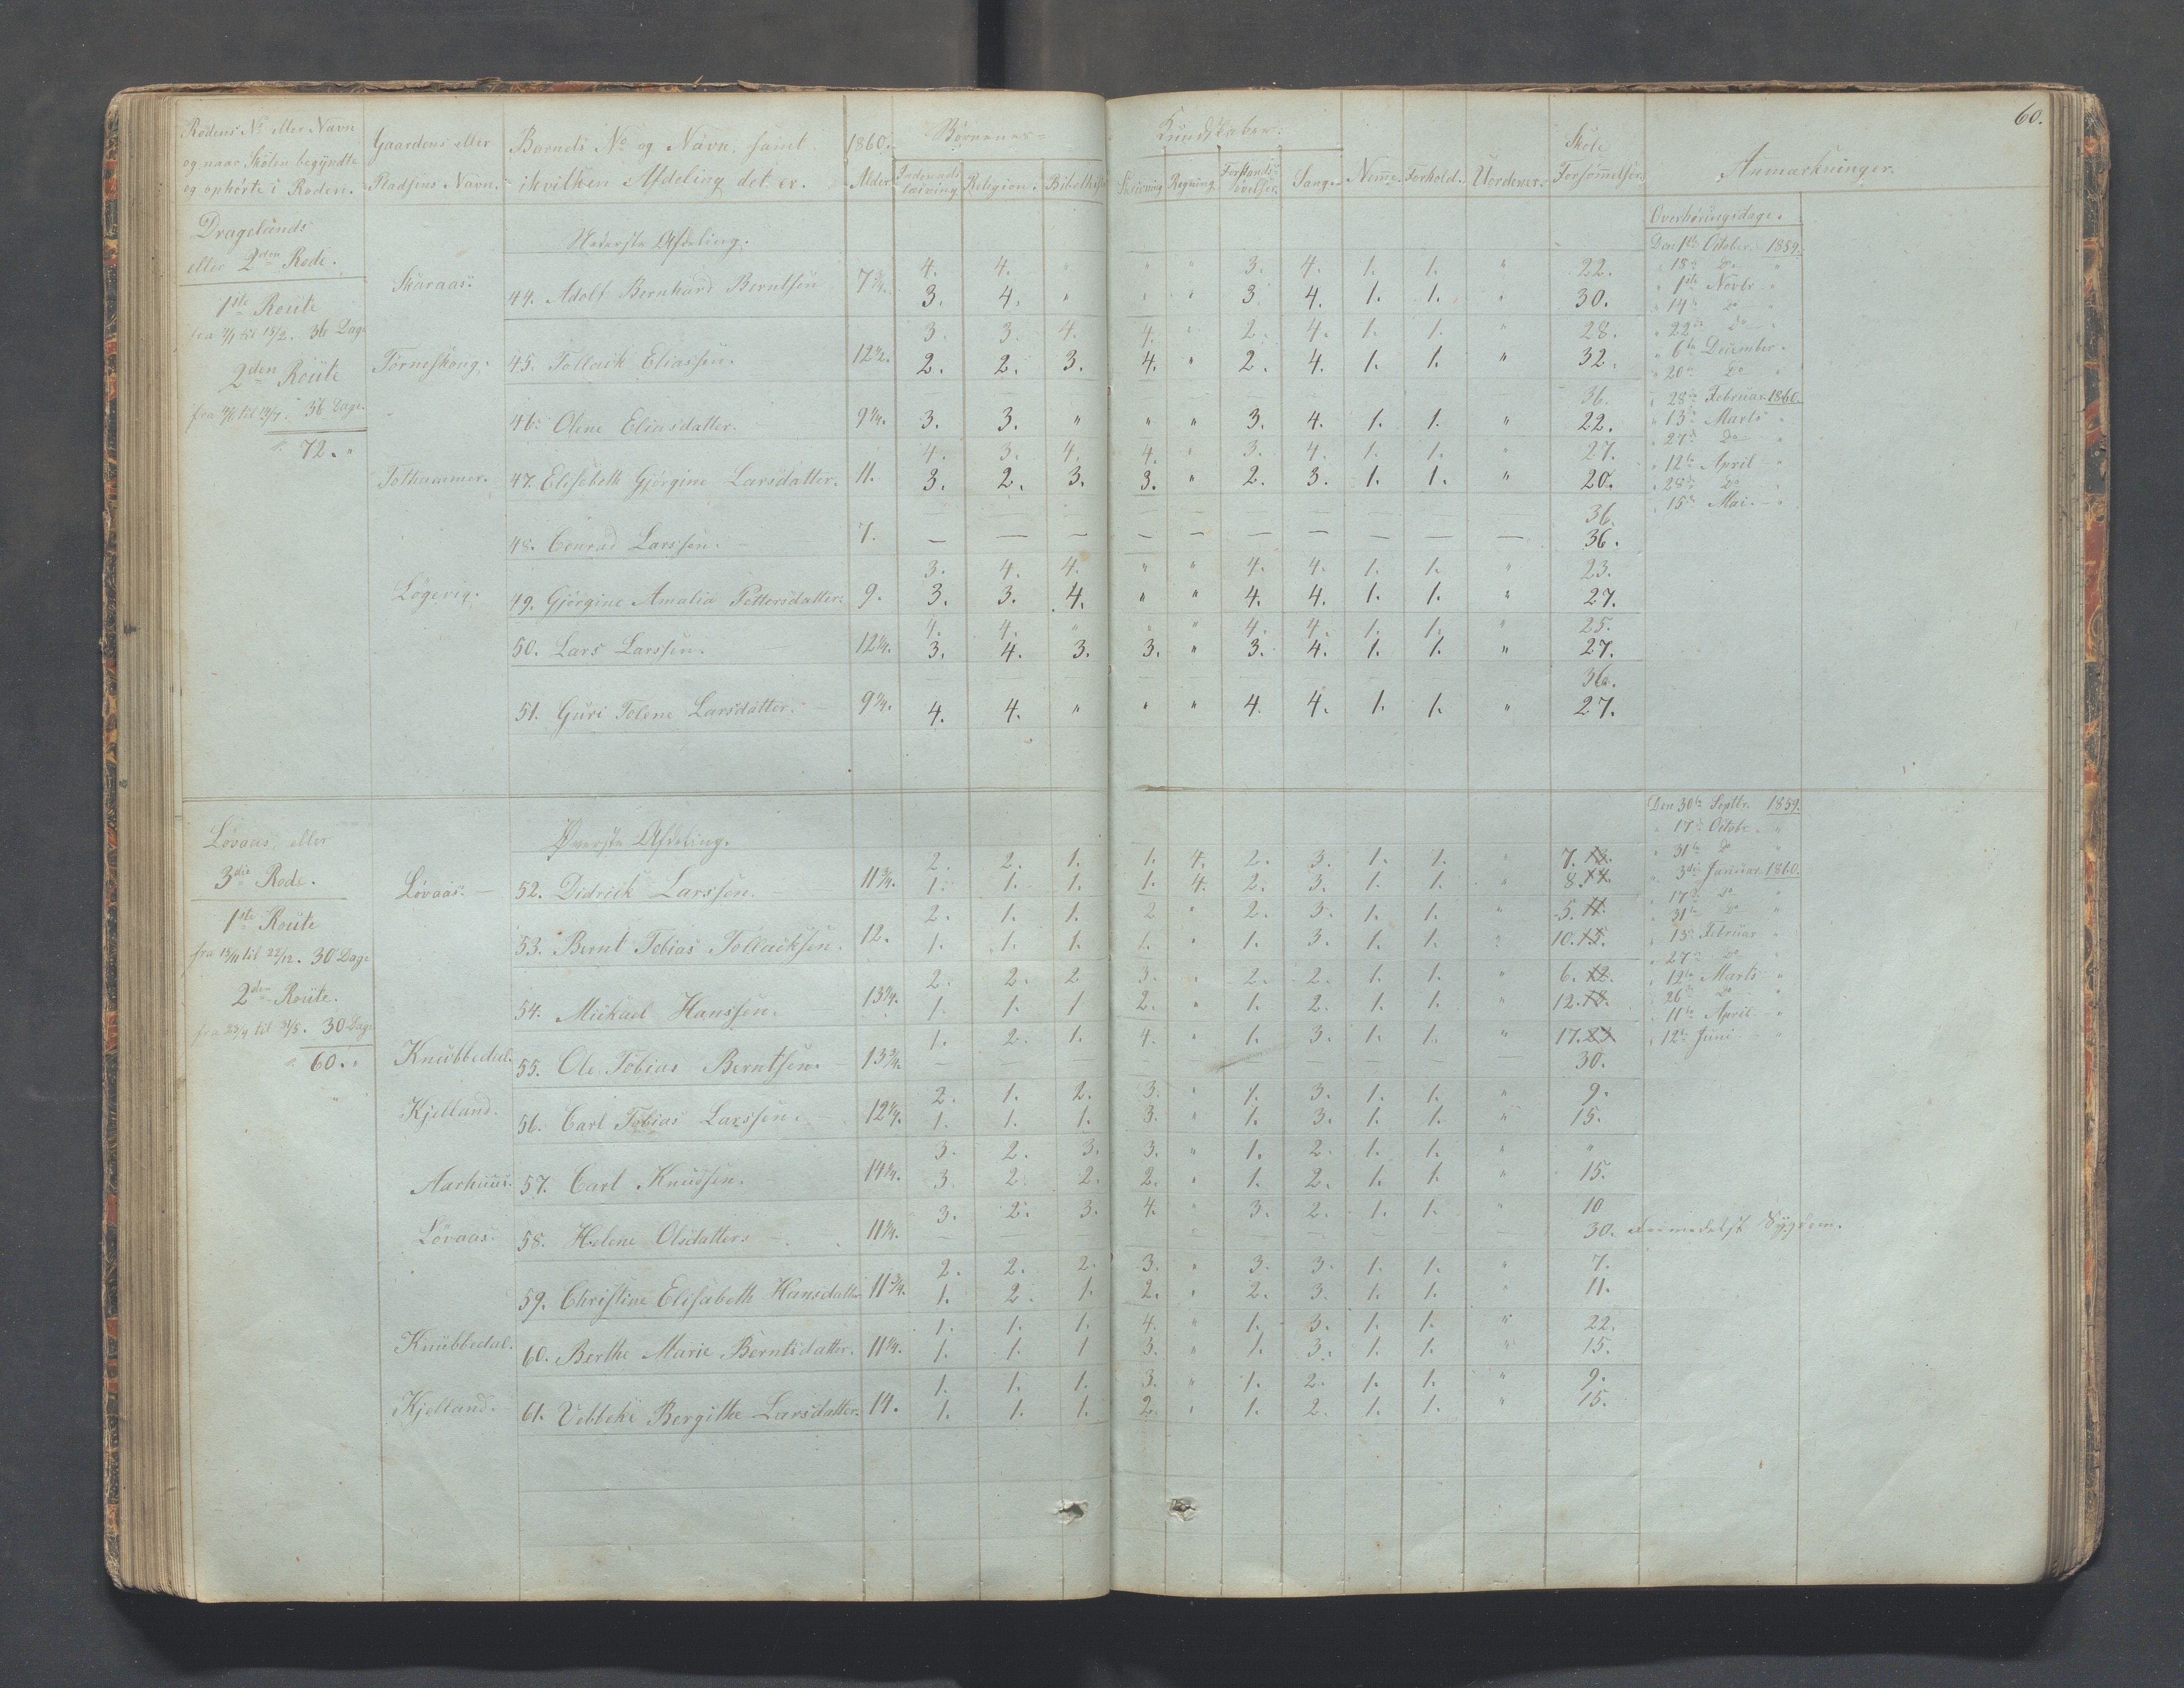 60.
Rodens No eller Navn og naar Skolen begyndte og ophørte i Roden. | Gaardens eller Pladsens Navn. | Barnets No og Navn, samt i hvilken Afdeling det er. | 1860. Alder | Børnenes Kundskaber: Indenadslæsning | Religion. | Bibelhist. | Skrivning | Regning | Forstands-øvelser. | Sang. | Nemme. | Forhold. | Uordener. | Skole Forsømmelser. | Anmærkninger.
Dragelands
eller 2den Rode.
Nederste Afdeling.
Overhøringsdage.
Den 1ste October 1859.
" 18de Do "
" 1ste Novbr "
" 14de Do "
" 22de Do "
" 6te December "
" 20de Do "
" 28de Februar 1860.
" 13de Marts "
" 27de Do "
" 12te April "
" 28de Do "
" 15de Mai "
1ste Route
36 Dage
2den Route
36 Dage.
72. "
4. 4. " " " 3. 4. 1. 1. " 22.
Skaraas. 44. Adolf Bernhard Berntsen 7 3/4. 3. 4. " " " 3. 4. 1. 1. " 30.
3. 3. 4. 4. " 2. 4. 1. 1. " 28.
Torneskoug. 45. Tollack Eliassen. 12 1/2. 2. 2. 3. 4. " 2. 4. 1. 1. " 32.
— — — — — — — — — — 36.
46. Olene Eliasdatter. 9 1/4. 3. 3. " " " 3. 4. 1. 1. " 22.
4. 3. 4. 4. " 3. 4. 1. 1. " 27.
Tothammer. 47. Elisabeth Gjørgine Larsdatter. 11. 3. 2. 3. 3. " 2. 3. 1. 1. " 20.
— — — — — — — — — — 36.
48. Conrad Larssen. 7. — — — — — — — — — — 36.
3. 4. 4. " " 4. 4. 1. 1. " 23.
Løgevig. 49. Gjørgine Amalia Pettersdatter. 9. 3. 3. 4. " " 4. 4. 1. 1. " 27.
4. 4. " " " 4. 4. 1. 1. " 25.
50. Lars Larssen. 12 1/4. 3. 4. 3. 3. " 3. 4. 1. 1. " 27.
36.
51. Guri Tolene Larsdatter. 9 1/4. 4. 4. " " " 4. 4. 1. 1. " 27.
Løvaas, eller
3die Rode.
Øverste Afdeling.
Den 30te Septbr. 1859.
" 17de Octobr. "
" 31te Do "
" 3die Januar 1860.
" 17de Do "
" 31te Do "
" 13de Februar "
" 27de Do "
" 12te Marts "
" 26de Do "
" 11te April "
" 12te Juni "
1ste Route
fra 13/11 til 22/12. 30 Dage
2den Route.
30 Dage
60. "
2. 2. 1. 1. 4. 2. 3. 1. 1. " 7. 13.
Løvaas. 52. Didrick Larssen. 11 3/4. 1. 1. 1. 1. 4. 2. 3. 1. 1. " 8. 14.
2. 1. 1. 2 " 2. 3. 1. 1. " 5. 11.
53. Bernt Tobias Tollacksen. 12. 1. 1. 1. 1. " 1. 3. 1. 1. " 10. 15.
2. 2. 2 3. " 2. 2. 1. 1. " 6. 12.
54. Mickael Hanssen. 13 1/4. 1. 1. 1 2. " 1. 2. 1. 1. " 12. 18.
1. 2. 1. 4. " 1. 3. 1. 1. " 17. 23
Knubbedal. 55. Ole Tobias Berntsen. 13 3/4. — — — — — — — — — — 30.
2. 1. 2. 3. " 1. 3. 1. 1. " 9.
Kjelland. 56. Carl Tobias Larssen. 12 1/4. 1. 1. 1. 3. " 1. 3. 1. 1. " 15.
3. 2. 3. 3. " 1. 2. 1. 1. " "
Aarhuus. 57. Carl Knudsen. 14 1/4. 3. 2. 2. 2. " 1. 2. 1. 1. " 15.
3. 2. 3. 4. " 3. 2. 1. 1. " 10
Løvaas. 58. Helene Olsdatter. 11 1/4. — — — — — — — — — — 30. Formedelst Sygdom.
2. 2. 2. 3. " 3. 3. 1. 1. " 7.
59. Christine Elisabeth Hansdatter 11 3/4. 1. 2. 1. 2. " 2. 3. 1. 1. " 11.
1. 1. 1. 4. " 1. 3. 1. 1. " 22.
Knubbedal. 60. Berthe Marie Berntsdatter. 11 1/4. 1. 1. 1 3. " 1. 3. 1. 1. " 15.
1. 1. 1. 3. " 1. 2. 1. 1. " 9.
Kjelland. 61. Vebbeke Bergithe Larsdatter. 14. 1. 1. 1. 2. " 1. 2. 1. 1. " 15.